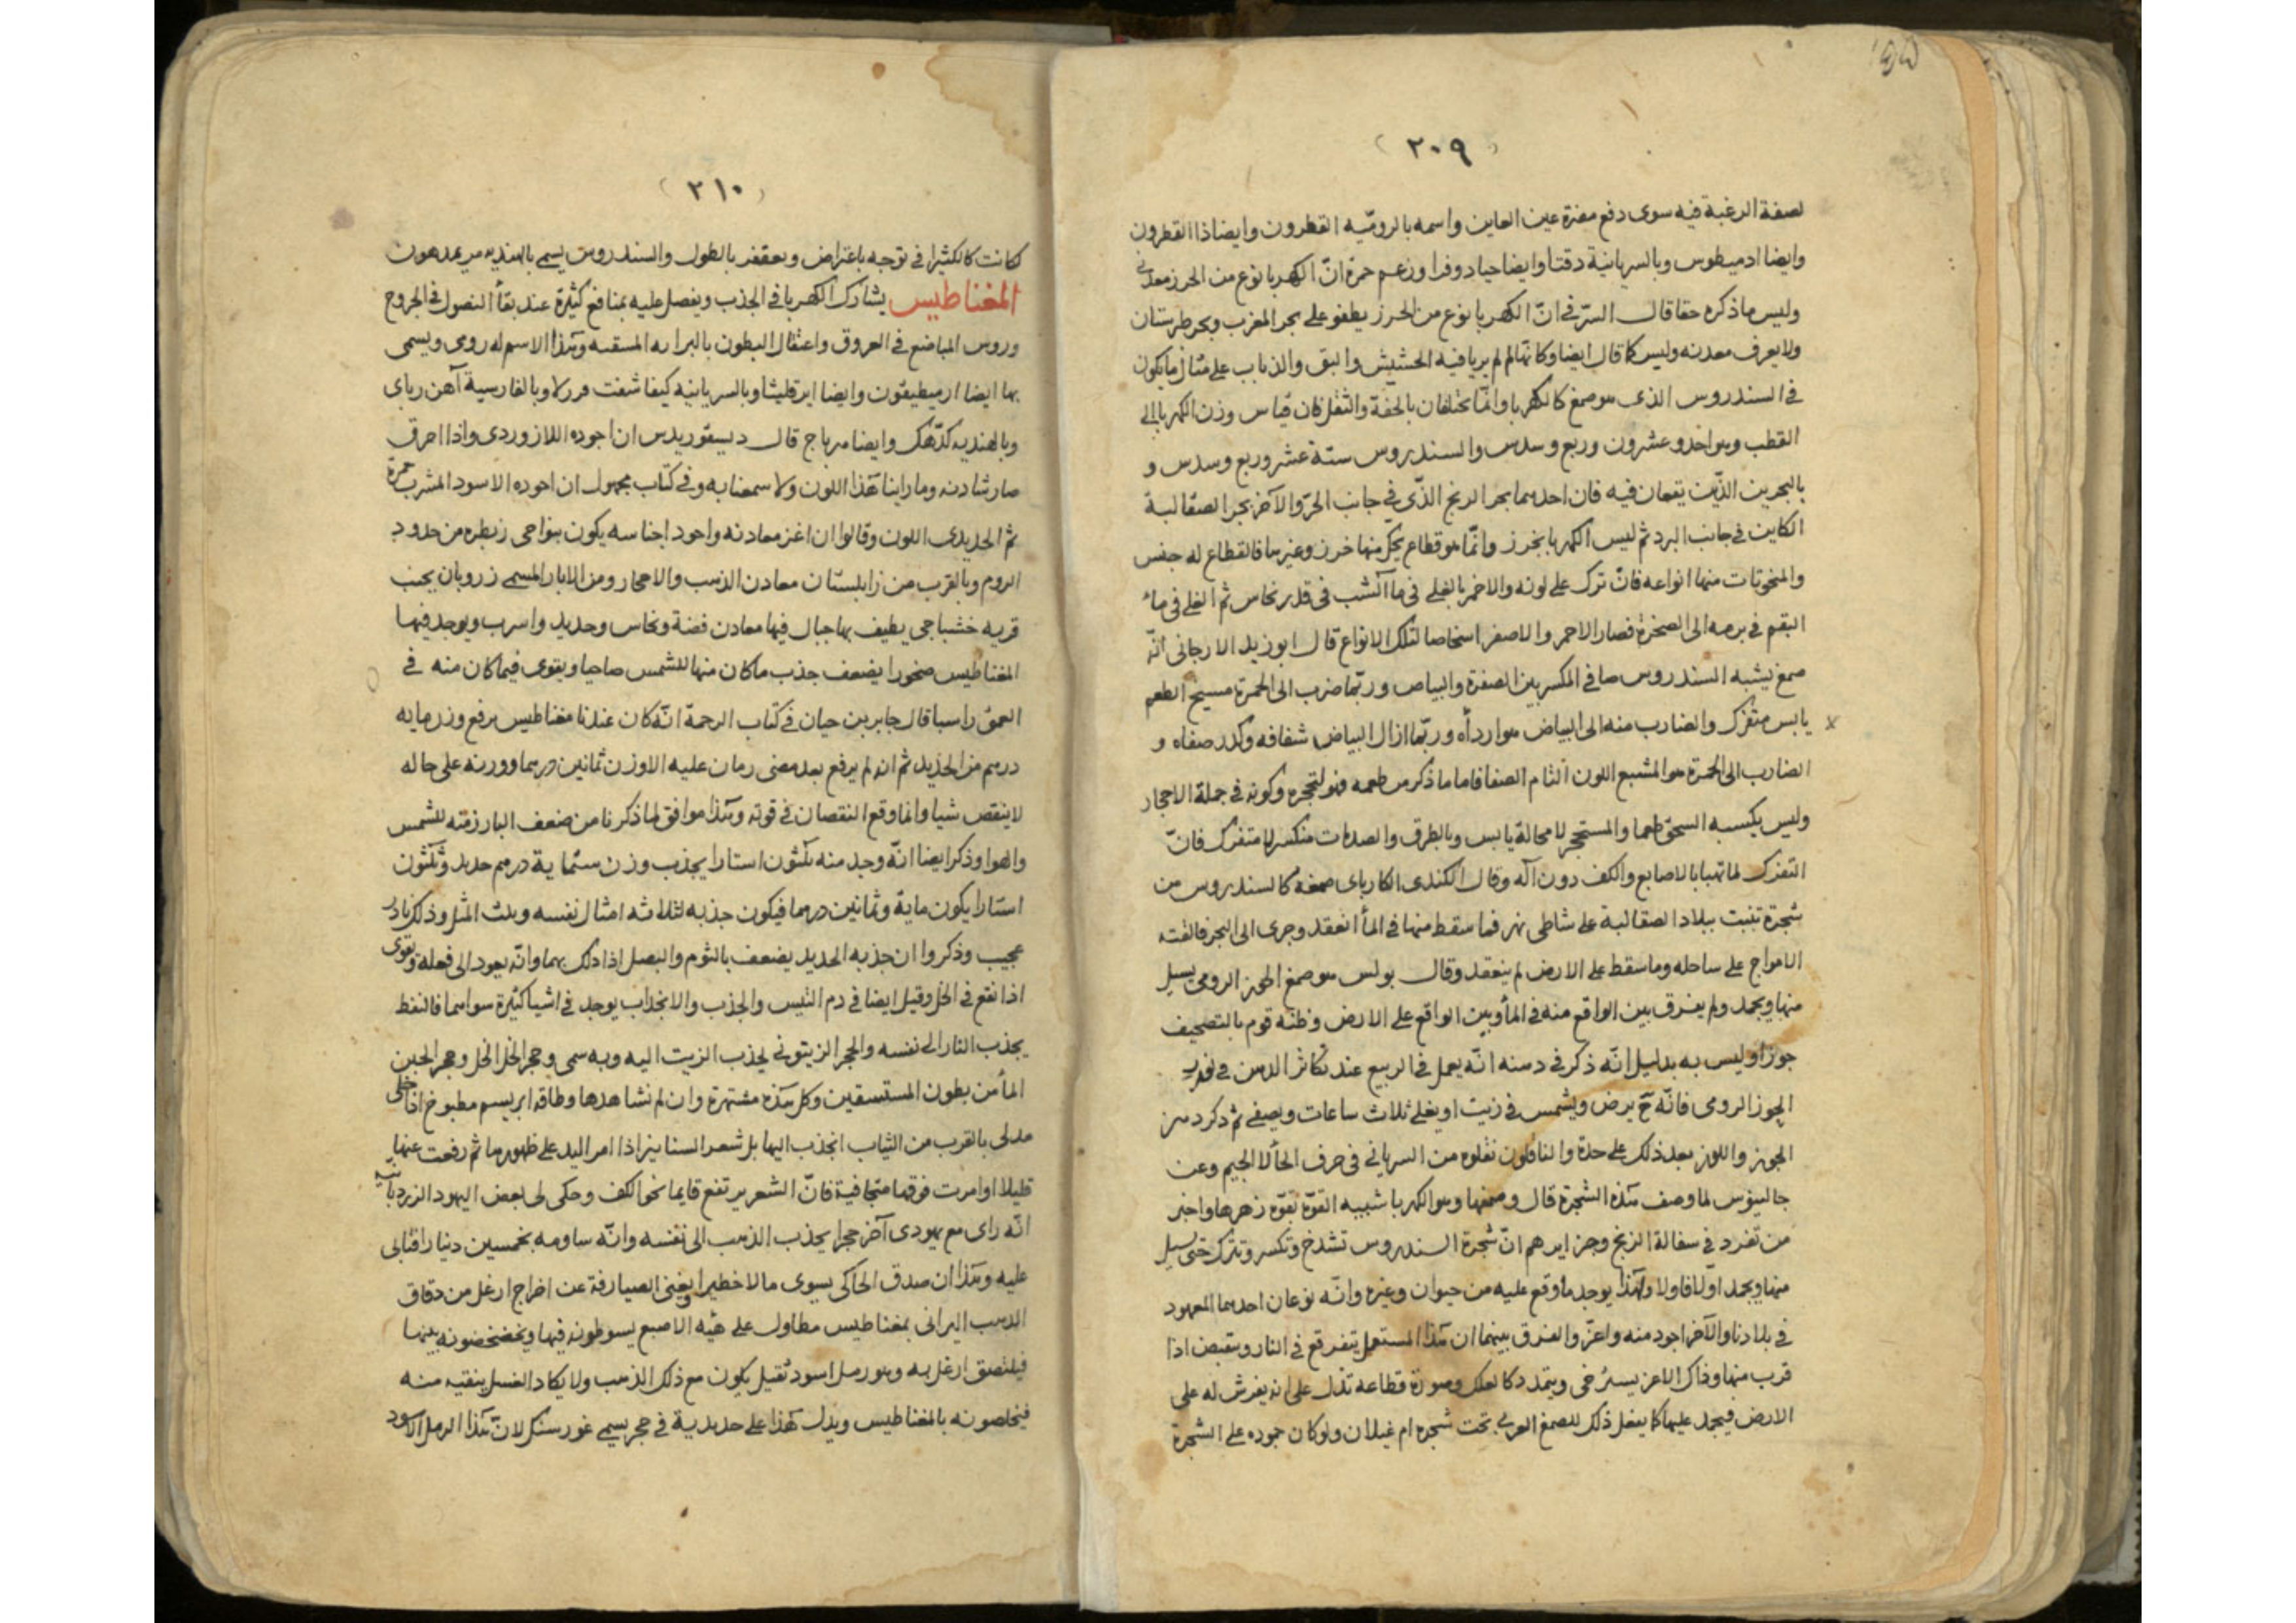 ١٥٥
(٢٠٩)
لصفة الرغبة فيه سوى دفع مضرة عين العاين واسمه بالروميّه القطرون وايضا ذا القطرون
وايضا ادميطوس وبالسريانية دقتا وايضا حيادوفرا وزعم حمزة انّ الكهربا نوع من الخرز معدنى
وليس ما ذكره حقا قال السرّ فى انّ الكهربا نوع من الخرز يطفو على بحر المغرب وبحر طبرستان
ولا يعرف معدنه وليس كما قال ايضا وكانهّا لم ير يا فيه الحشيش والبق والذباب على مثال ما يكون
فى السندروس الذى هو صمغ كالكهربا وانمّا يختلفان بالخفة والثقل فان قياس وزن الكهربا الى
القطب هو احد وعشرون وربع وسدس والسندروس ستة عشر وربع وسدس و
بالبحرين الذّين يقعان فيه فان احدهما بحر الزنج الذّى فى جانب الحرّ والآخر بحر الصقالبة
الكاين فى جانب البرد ثم ليس الكهربا بخرز وانمّا هو قطاع يحكّ منها خرز وغيرها فالقطاع له جنس
والمنحوتات منها انواعه فانّ ترك على لونه والاخمر بالغلى فى ما الشب فى قدر نحاس ثم الغلى فى ماء
البقم فى برمه الى الصخرة فصار الاحمر والاصفر اشخاصا لتلك الانواع قال ابو زيد الارجانى انّه
صمغ يشبه السندروس صافى المكسر بين الصفرة والبياض وربمّا ضرب الى الحمرة مسيخ الطعم
يابس متفرك والضارب منه الى البياض هو ارداه وربمّا ازال البياض شفافه وكدر صفاه و
الضارب الى الحمرة هو المشبع اللون التام الصفا فاما ما ذكر من طعمه فهو لتحجره وكونه فى جملة الاحجار
وليس يكسبه السحق طعما والمستحجر لا محالة يابس وبالطرق والصدمات منكسر لا متفرك فانّ
التفرك لما تهيا بالاصابع والكف دون آله وقال الكندى الكارباى صمغه كالسندروس من
شجرة تنبت ببلاد الصقالبة على شاطى نهر فما سقط منها فى الماء انعقد وجرى الى البحر فالقته
الامواج على ساحله وما سقط على الارض لم ينعقد وقال بولس هو صمغ الجوز الرومى يسيل
منها ويجمد ولم يفرق بين الواقع منه فى الماء وبين الواقع على الارض وظنه قوم بالتصحيف
جوزا وليس به بدليل انّه ذكر فى دسنه انّه يعمل فى الربيع عند تكاثر الدهن فى
الجوز الرومى فانّه يرض ويشمس فى زيت او يغلى ثلاث ساعات ويصفى ثم ذكر دهن
الجوز واللوز بعد ذلك على حدة والناقلون نقلوه من السريانى فى حرف الحا لا الجيم وعن
جالينوس لما وصف هذه الشجرة قال وصمغها وهو الكهربا شبيه القوة بقوة زهرها واخبر
من تفرد فى سفالة الزنج وجزايرهم انّ شجرة السندروس تشدخ وتكسر وتترك حتى يسيل
منها ويجمد اولا فاولا ولهذا يوجد ما وقع عليه من حيوان وغيره وانّه نوعان احدهما المعهود
فى بلادنا والآخر اجود منه واعزّ والفرق بينهما ان هذا المستعمل يتفرقع فى النار وينقبض اذا
قرب منها وذاك الاعز يسترخى ويتمدد كالعلك وصورة قطاعه تدل على انه يفرش له على
الارض فيجمد عليها كما يفعل ذلك للصمغ العربى تحت شجرة ام غيلان ولو كان جموده على الشجرة
(٢١٠)
لكانت كالكثيرا فى توجه باعتراض وتعقف بالطول والسندروس يسمى بالهنديه مريمدهون
المغناطيس يشارك الكهربا فى الجذب ويفضل عليه بمنافع كثيرة عند بقاء النصول فى الجروح
وروس المباضع فى العروق واعتقال البطون بالبراده المسقيه وهذا الاسم له رومى ويسمى
بها ايضا ارميطيقون وايضا ايرقليثا وبالسريانيه كيفا شفت فرزلا وبالفارسية آهن رباى
وبالهنديه كدّهك وايضا هرباج قال ديسقوريدس ان اجوده اللازوردى واذا احرق
صار شادنه وما راينا هذا اللون ولا سمعنا به وفى كتاب مجهول ان اجوده الاسود المشرب حمرة
ثم الحديدى اللون وقالوا ان اغزر معادنه واجود اجناسه يكون بنواحى زبطره من حدود
الروم وبالقرب من زابلستان معادن الذهب والاحجار ومن الابار المسمى زرويان بجنب
قريه خشباجى يطيف بها جبال فيها معادن فضة ونحاس وحديد واسرب ويوجد فيها
المغناطيس صخورا يضعف جذب ما كان منها للشمس ضاحيا ويقوى فيما كان منه فى
العمق راسبا قال جابر بن حيان فى كتاب الرحمة انّه كان عندنا مغناطيس يرفع وزن مايه
درهم من الحديد ثم انه لم يرفع بعد مضى زمان عليه الا وزن ثمانين درهما ووزنه على حاله
لا ينقص شيا وانما وقع النقصان فى قوته وهذا موافق لما ذكرنا من ضعف البارز منه للشمس
والهوا وذكر ايضا انّه وجد منه ثلثون استارا يجذب وزن ستماية درهم حديد وثلثون
استارا يكون ماية وثمانين درهما فيكون جذبه لثلاثه امثال نفسه وثلث المثل وذلك نادر
عجيب وذكروا ان جذبه الحديد يضعف بالثوم والبصل اذا دلك بهما وانّه يعود الى فعله وتقوى
اذا نقع فى الخل وقيل ايضا فى دم التيس والجذب والانجذاب يوجد فى اشيا كثيرة سواهما فالنفط
يجذب النار الى نفسه والحجر الزيتونى يجذب الزيت اليه وبه سمى وحجر الخل الخل وحجر الجبن
الماء من بطون المستسقين وكل هذه مشتهرة وان لم نشاهدها وطاقه ابريسم مطبوخ اذا خلى
مدلى بالقرب من الثياب انجذب اليها بل شعر السنانير اذا امر اليد على ظهورها ثم رفعت عنها
قليلا او امرت فوقها متجافية فانّ الشعر يرتفع قايما نحو الكف وحكى لى بعض اليهود الزردبانيه
انّه راى مع يهودى آخر حجرا يجذب الذهب الى نفسه وانّه ساومه بخمسين دينارا فتابى
عليه وهذا ان صدق الحاكى يسوى مالا خطيرا ويغنى الصيارفة عن اخراج ارغل من دقاق
الذهب اليرانى بمغناطيس مطاول على هيه الاصبع يسوطونه فيها ويخضخضونه بينها
فيلتصق ارغل به وهو رمل اسود ثقيل يكون مع ذلك الذهب ولا يكاد الغسل ينقيه منه
فيخلصونه بالمغناطيس ويدل هذا على حديدية فى حجر يسمى غورسنك لانّ هذا الرمل الاسود